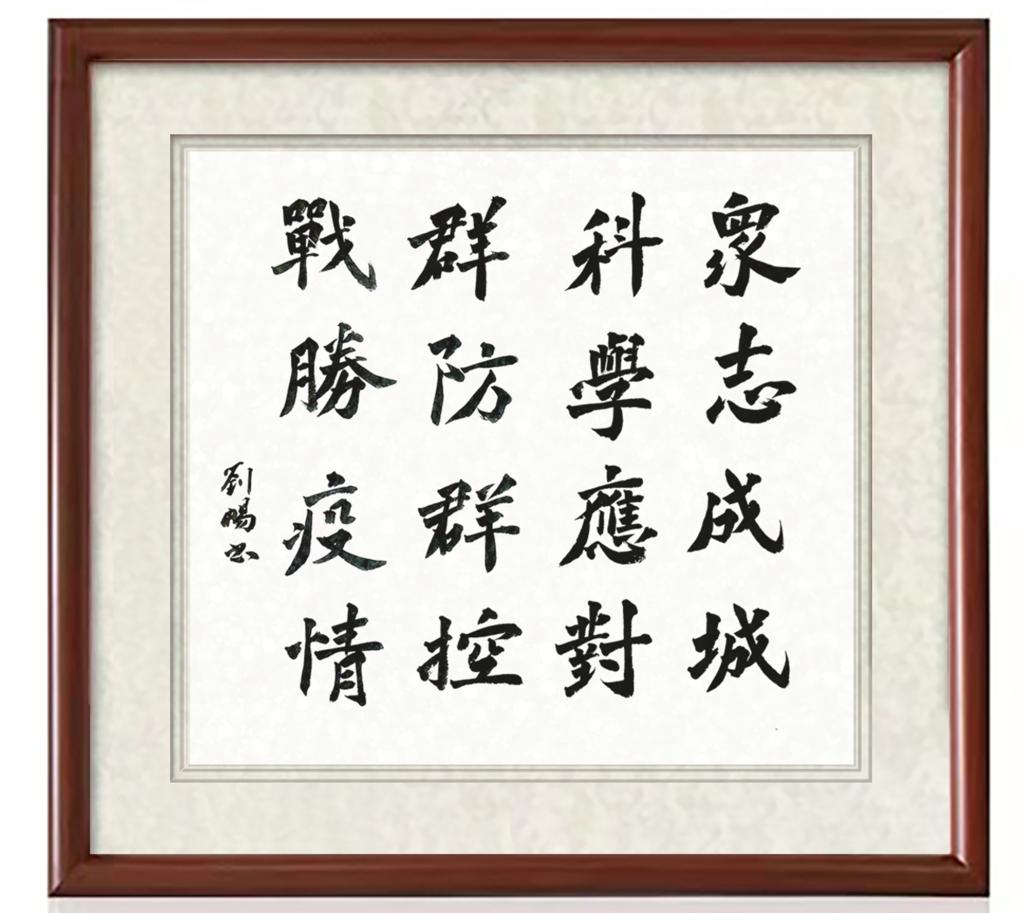 眾志成城
科學應對
群防群控
戰勝疫情
劉暢书